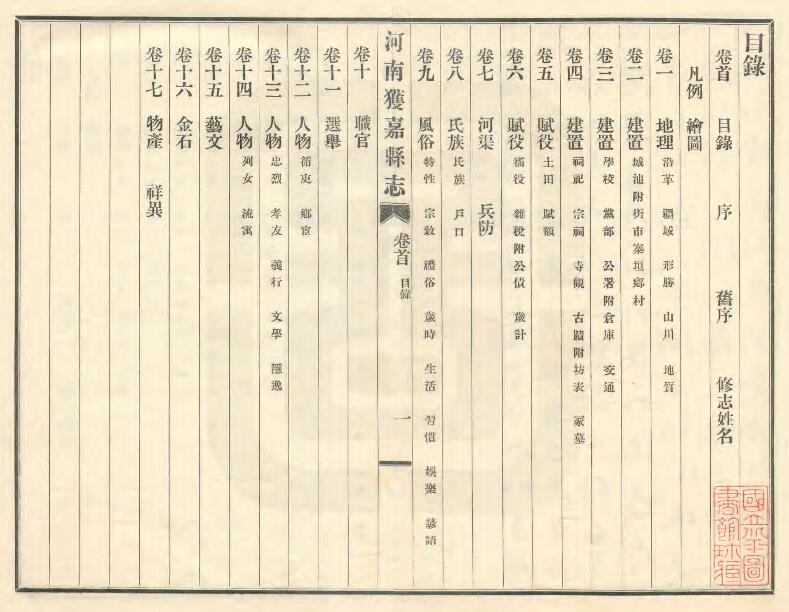 目錄
卷首 目錄 序 舊序 修志姓名
凡例 繪圖
卷一 地理 沿革 疆域 形勝 山川 地質
卷二 建置 城池附街市寨垣鄉村
卷三 建置 學校 黨部 公署附倉庫 交通
卷四 建置 祠祀 宗祠 寺觀 古蹟附坊表 冢墓
卷五 賦役 土田 賦額
卷六 賦役 徭役 雜稅附公債 歲計
卷七 河渠 兵防
卷八 氏族 氏族 戶口
卷九 風俗 特性 宗教 禮俗 歲時 生活 習慣 娛樂 諺語
河南獲嘉縣志 卷首 目錄 一
卷十 職官
卷十一 選舉
卷十二 人物 循吏 鄉宦
卷十三 人物 忠烈 孝友 義行 文學 隱逸
卷十四 人物 列女 流寓
卷十五 藝文
卷十六 金石
卷十七 物產 祥異
國立平圖
書館珍